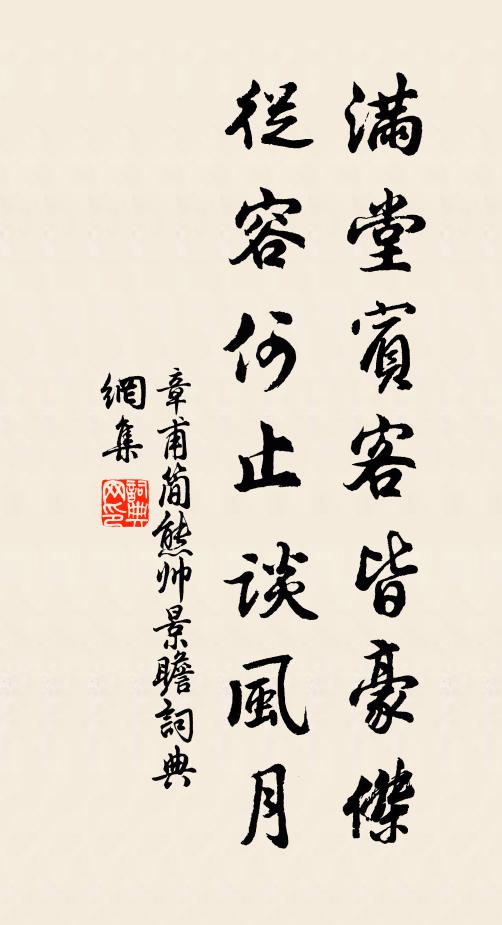 滿堂賓客皆豪傑
從容何止談風月
章甫简熊帅景瞻詞典
網集
詞典
网印